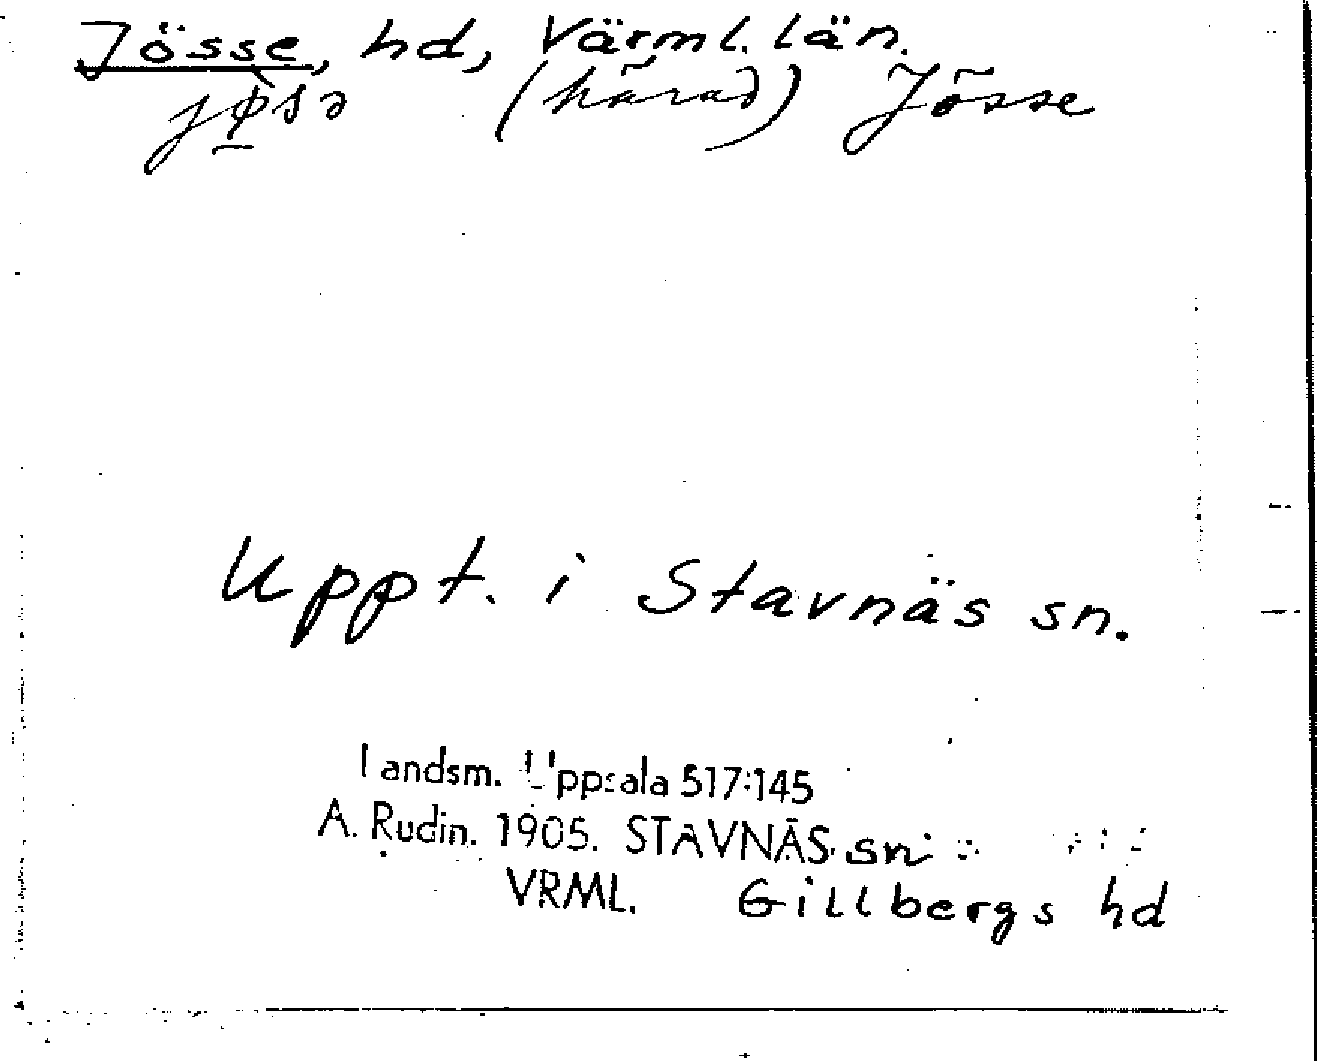 Jösse, hd, Värml. län.
jøsə (härad) Jösse
Uppt. i Stavnäs sn.
Landsm. Uppsala 517:145
A. Rudin. 1905. STAVNÄS sn
VRML. Gillbergs hd